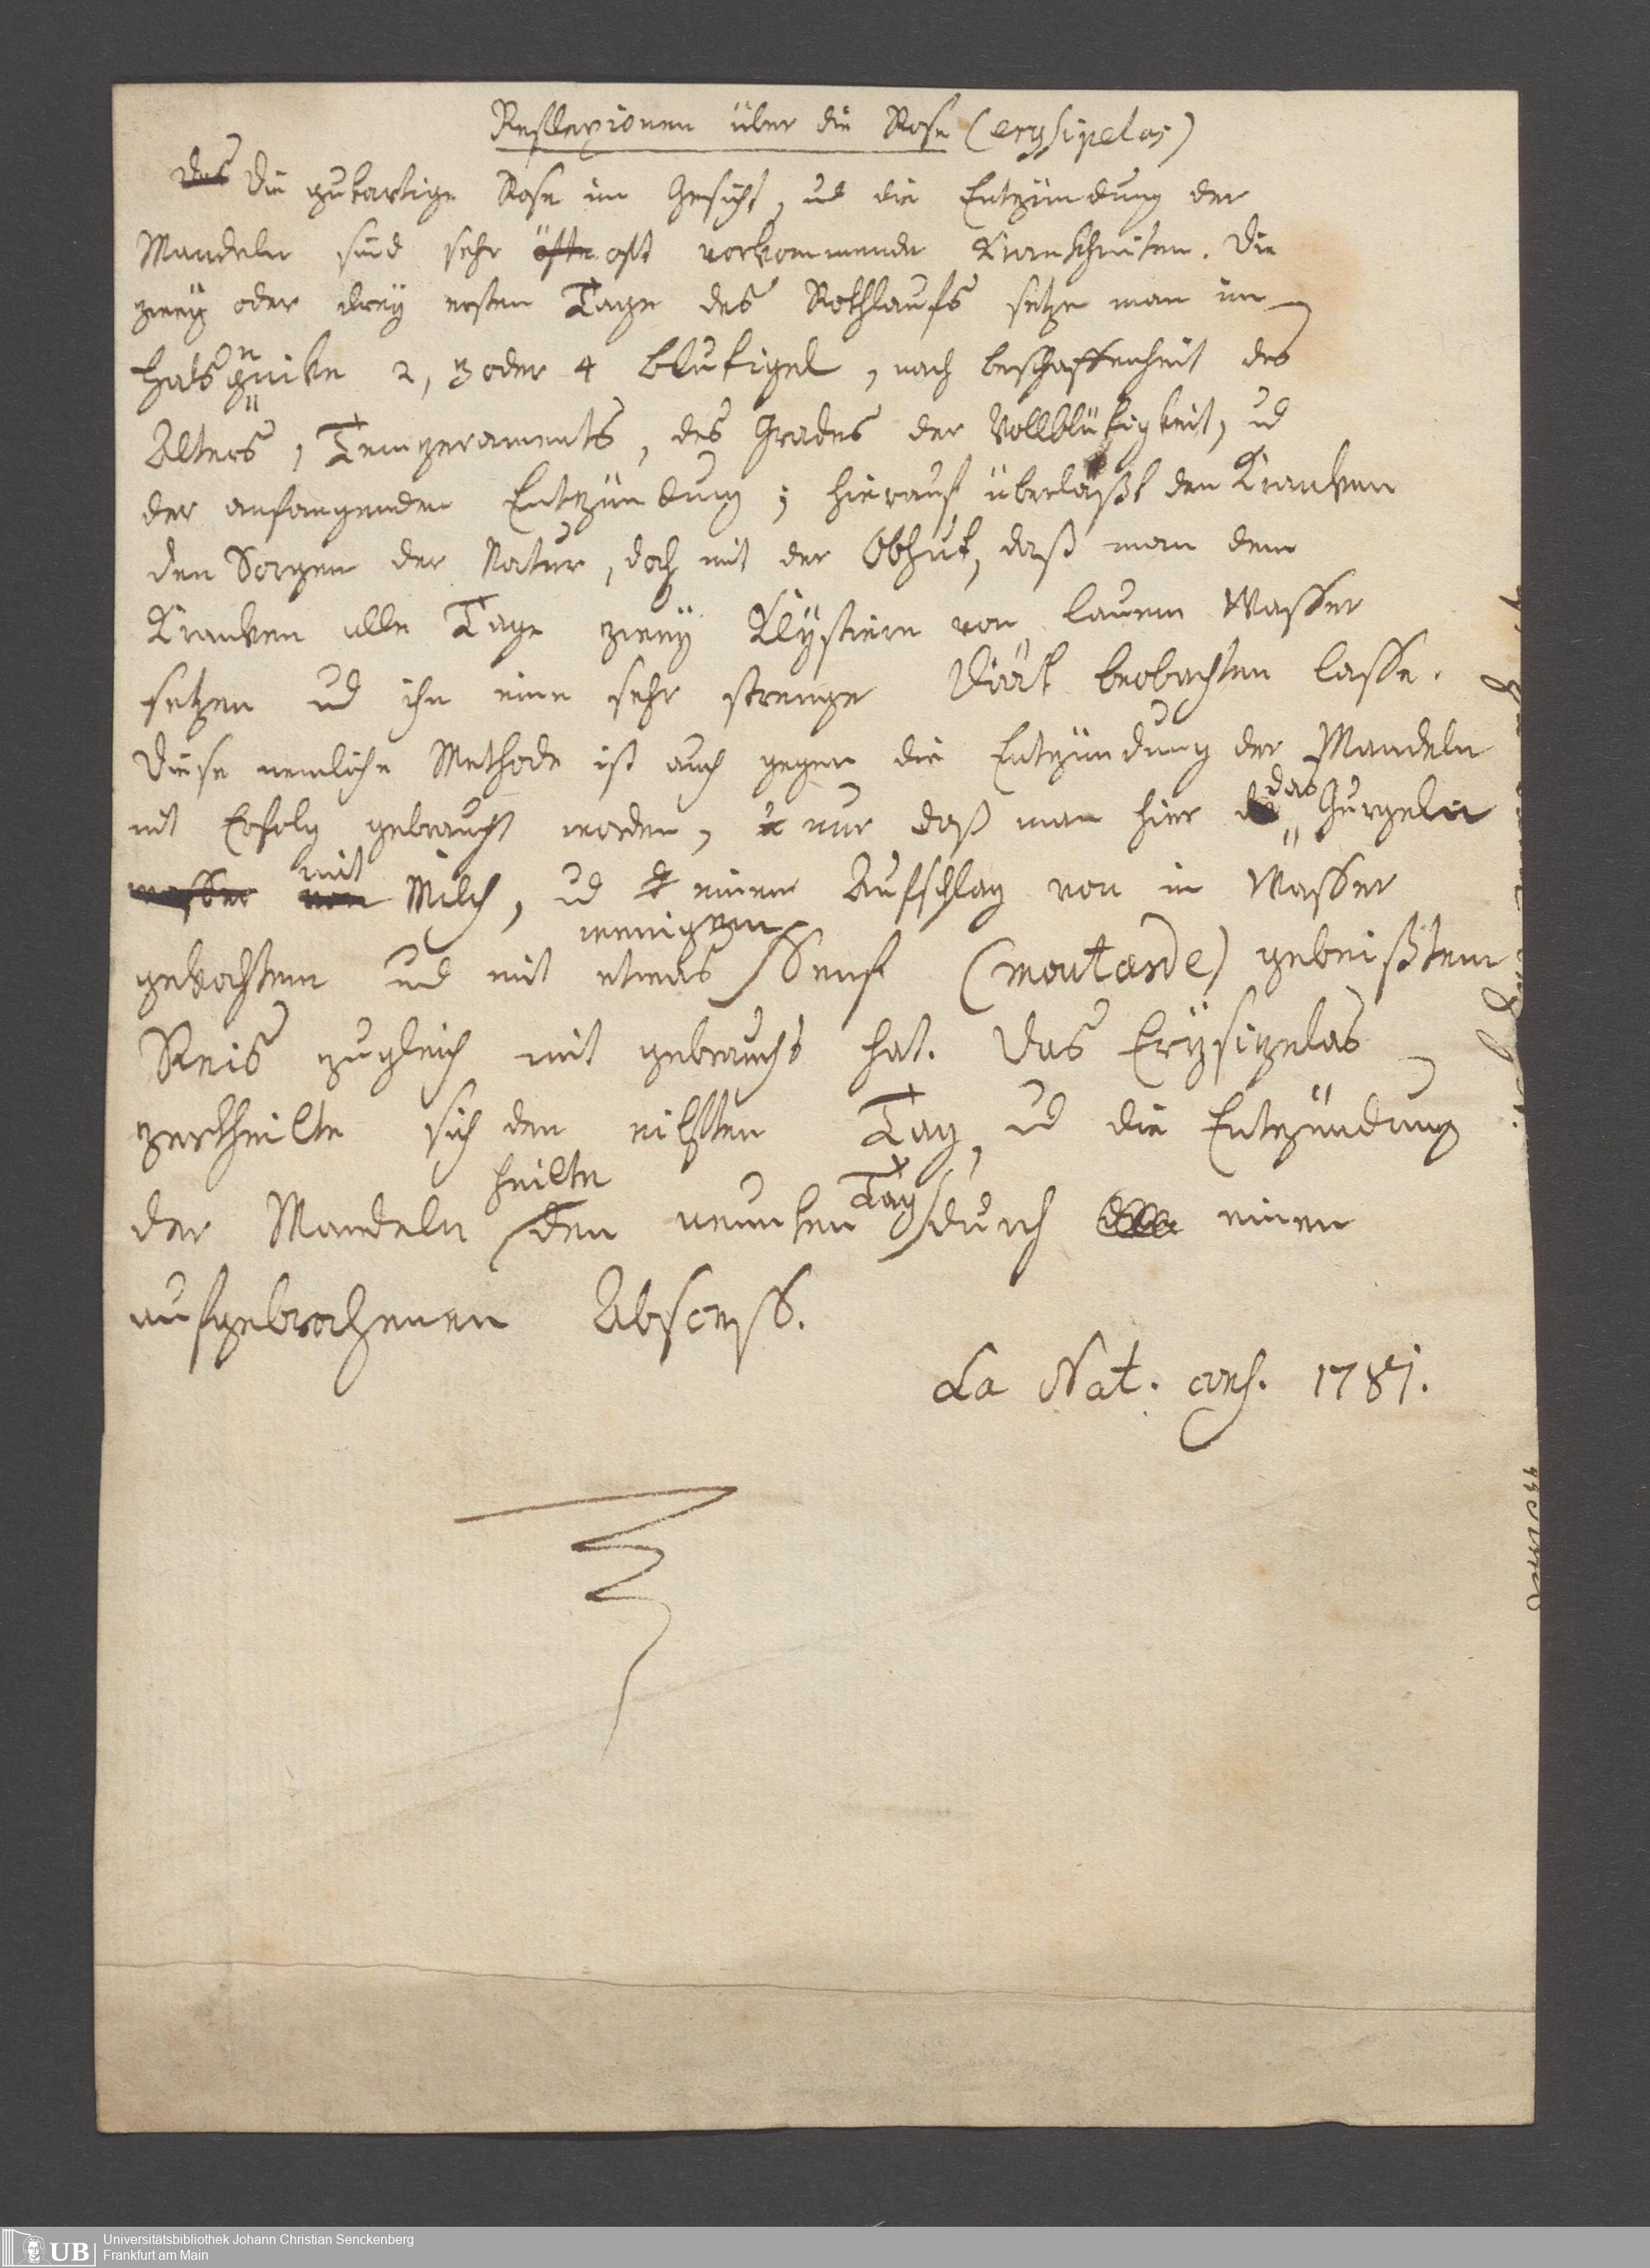 Reflexionen über die Rose (erysipelas)
Das Die gutartige Rose im Gesicht, ud die Entzündung der
Mandeln sind sehr öfte oft vorkommende Krankheiten. Die
zwey oder drey ersten Tage des Rothlaufs setze man im
Halsgnike 2, 3 oder 4 Blutigel, nach beschaffenheit des
Alters, Temperaments, des Grades der Vollblütigkeit, ud
der anfangenden Entzündung; hierauf überläßt den Kranken
den Sorgen der Natur, doch mit der Obhut, daß man dem
Kranken alle Tage zwey Klystiere von lauem Wasser
setzen ud ihn eine sehr strenge Diät beobachten lasse.
Diese nemliche Methode ist auch gegen die Entzündung der Mandeln
mit Erfolg gebraucht worden, nur daß man hier das Gurgeln
wasser von mit Milch, ud einen Aufschlag von in Wasser
gekochtem ud mit etwas wenigem Senf (moutarde) gebeißtem
Reis zugleich mit gebraucht hat. Das Erysipelas
zertheilte sich den eilften Tag, ud die Entzündung
der Mandeln heilte den neunten Tag durch einen
aufgebrochenen Abscess.
La Nat. cons. 1781.
UB Universitätsbibliothek Johann Christian Senckenberg
Frankfurt am Main